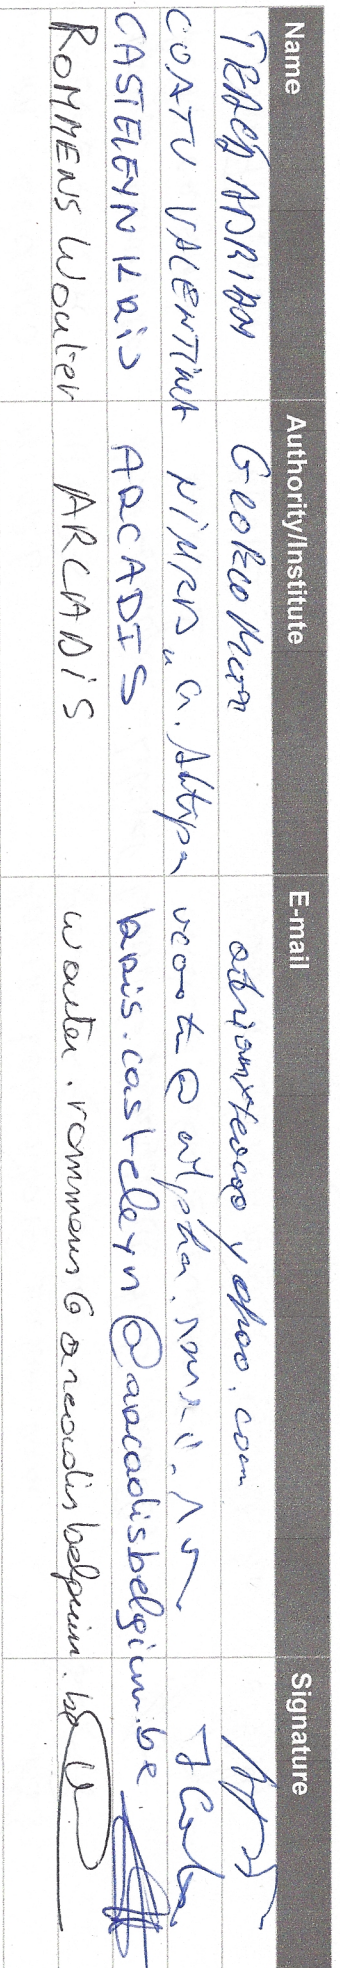 Name Authority/Institute E-mail Signature
TEACĂ ADRIAN GeoEcoMar yahoo.com
COATU VALENTINA NIMRD "G. Antipa vcoatu@alpha.rmri.ro
CASTELEYN Kris ARCADIS kris.casteleyn@arcadisbelgium.be
ROMMENS Wouter ARCADIS wouter.rommens@arcadisbelgium.be